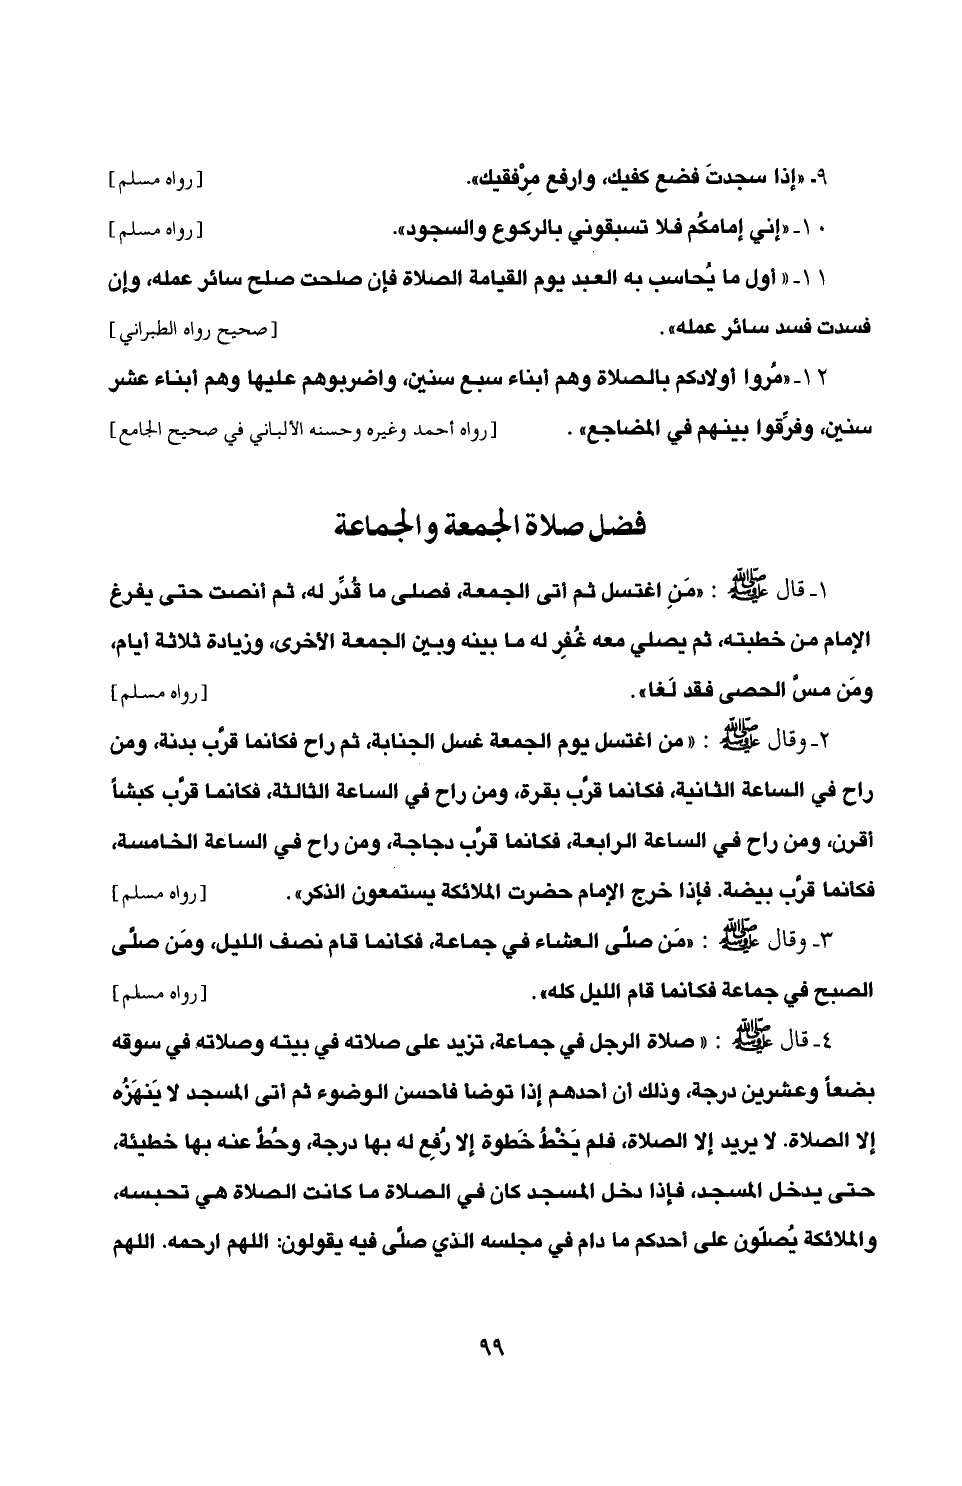 ٩ـ «إذا سجدتَ فضع كفيك، وارفع مِرْفقيك». [رواه مسلم]
١٠ـ «إني إمامكُم فلا تسبقوني بالركوع والسجود». [رواه مسلم]
١١ـ « أول ما يُحاسب به العبد يوم القيامة الصلاة فإن صلحت صلح سائر عمله، وإن
فسدت فسد سائر عمله» . [صحيح رواه الطبراني]
١٢ـ «مُروا أولادكم بالصلاة وهم أبناء سبع سنين، واضربوهم عليها وهم أبناء عشر
سنين، وفرِّقوا بينهم في المضاجع» . [رواه أحمد وغيره وحسنه الألباني في صحيح الجامع]
فضل صلاة الجمعة والجماعة
١ـ قال ﷺ : «مَنِ اغتسل ثم أتى الجمعة، فصلى ما قُدِّر له، ثم أنصت حتى يفرغ
الإمام من خطبته، ثم يصلي معه غُفِر له ما بينه وبين الجمعة الأخرى، وزيادة ثلاثة أيام،
ومَن مسَّ الحصى فقد لَغا» . [رواه مسلم]
٢ـ وقال ﷺ : « من اغتسل يوم الجمعة غسل الجنابة، ثم راح فكانما قرَّب بدنة، ومن
راح في الساعة الثانية، فكانما قرَّب بقرة، ومن راح في الساعة الثالثة، فكانما قرَّب كبشاً
أقرن، ومن راح في الساعة الرابعة، فكانما قرَّب دجاجة، ومن راح في الساعة الخامسة،
فكانما قرَّب بيضة. فإذا خرج الإمام حضرت الملائكة يستمعون الذكر» . [رواه مسلم]
٣ـ وقال ﷺ : «مَن صلَّى العشاء في جماعة، فكانما قام نصف الليل، ومَن صلَّى
الصبح في جماعة فكانما قام الليل كله» . [رواه مسلم]
٤ـ قال ﷺ : « صلاة الرجل في جماعة، تزيد على صلاته في بيته وصلاته في سوقه
بضعاً وعشرين درجة، وذلك أن أحدهم إذا توضا فاحسن الوضوء ثم أتى المسجد لا يَنهَزُه
إلا الصلاة. لا يريد إلا الصلاة، فلم يَخْطُ خَطوة إلا رُفِع له بها درجة، وحُطَّ عنه بها خطيئة،
حتى يدخل المسجد، فإذا دخل المسجد كان في الصلاة ما كانت الصلاة هي تحبسه،
والملائكة يُصلّون على أحدكم ما دام في مجلسه الذي صلَّى فيه يقولون: اللهم ارحمه. اللهم
٩٩